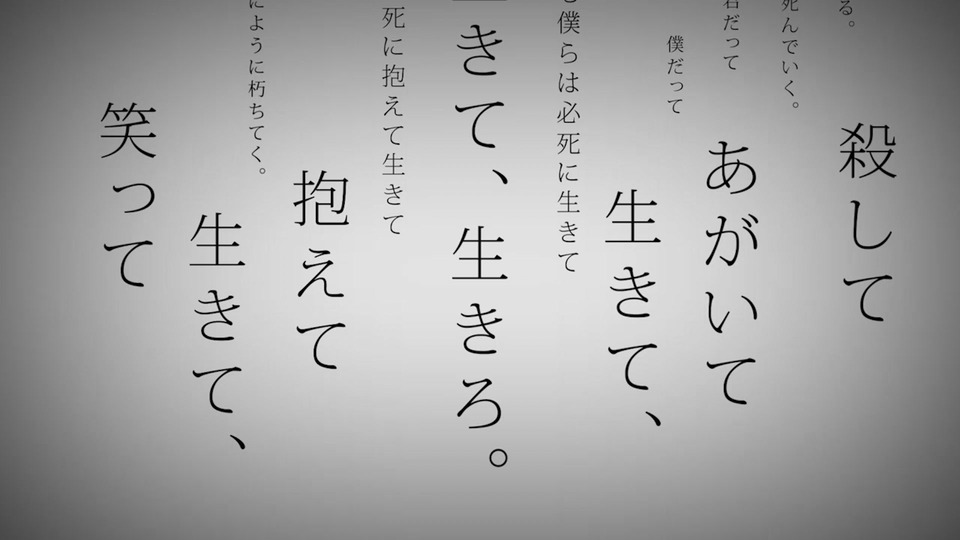 る。
殺して
死んでいく。
君だって
あがいて
僕だって
生きて、
も僕らは必死に生きて
きて、生きろ。
死に抱えて生きて
抱えて
ように朽ちてく。
生きて、
笑って